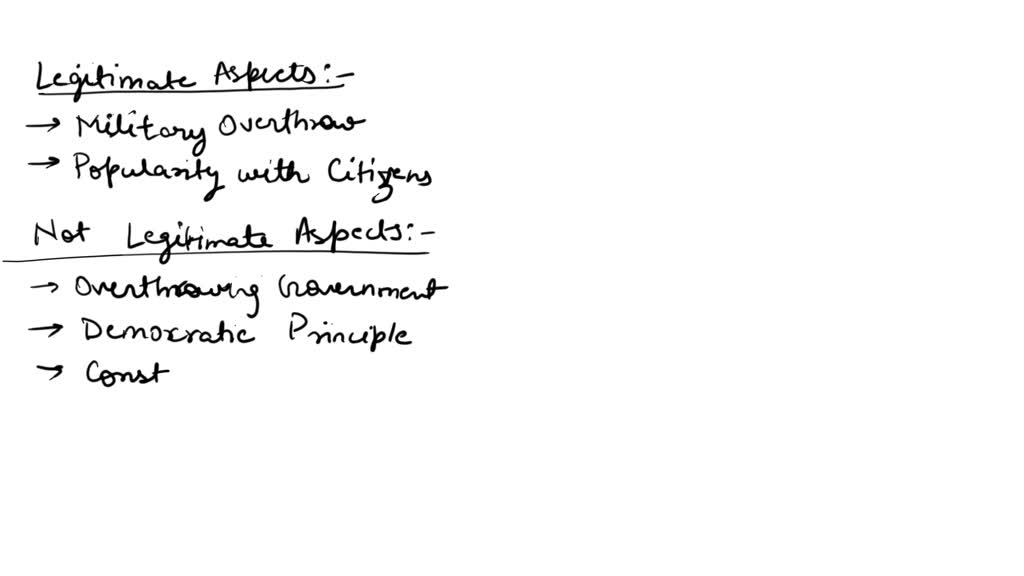 Legitimate Aspects:-
→ Military Overthrow
→ Popularity with Citizens
Not Legitimate Aspects:-
→ Overthrowing Government
→ Democratic Principle
→ Const